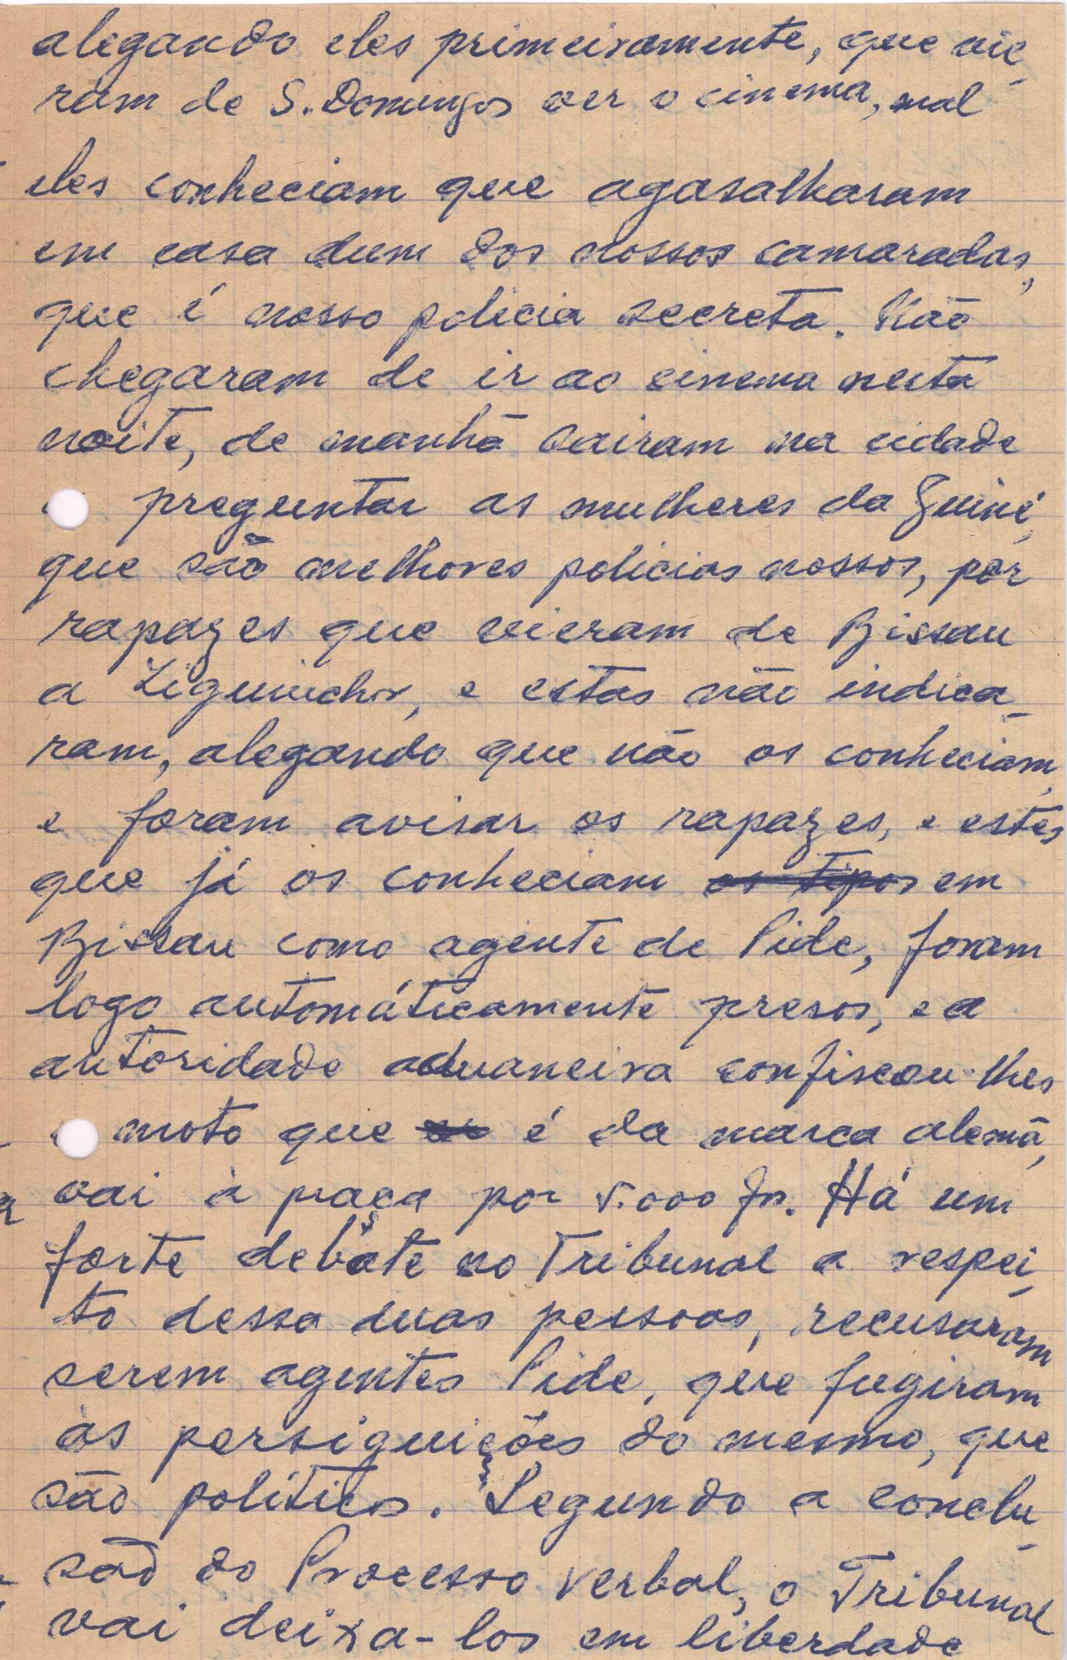 alegando eles primeiramente, que vie_
ram de S. Domingos ver o cinema, mal
eles conheciam que agasalharam
em casa dum dos nossos camaradas,
que é nosso policia secreta. Não
chegaram de ir ao cinema nesta
noite, de manhã sairam na cidade
preguntar as mulheres da Guiné,
que são melhores policias nossos, por
rapazes que vieram de Bissau
a Ziguinchor, e estas não indica_
ram, alegando que não os conheciam,
e foram avisar os rapazes, e estes
que já os conheciam os tipos em
Bissau como agente de Pide, foram
logo automáticamente presos, e a
autoridade aduaneira confiscou-lhes
moto que é da marca alemã,
vai à praça por 5.000 frs. Há um
forte debate no Tribunal a respei_
to dessa duas pessoas, recusaram
serem agentes Pide, que fugiram
às persiguições do mesmo, que
são políticos. Segundo a conclu_
são do Processo verbal, o Tribunal
vai deixa-los em liberdade